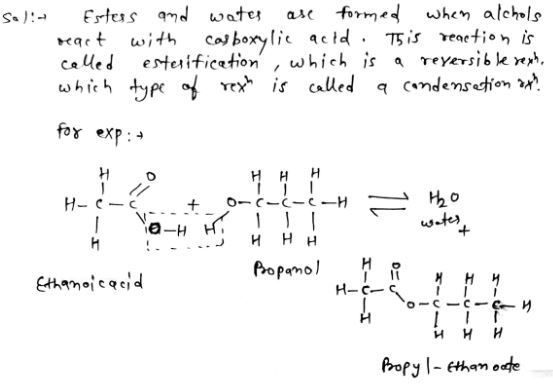 Sol:→ Esters and water are formed when alchols
react with carboxylic acid. This reaction is
called esterification, which is a reversible rexn.
which type of rexn is called a condensation rxn.
for exp:→
H O H H H
H-C-C + O-C-C-C-H ⇌ H2O
O-H H water
H H H H +
Ethanoic acid Propanol
H O H H H
H-C-C O-C-C-C-H
H H H H
Propyl-Ethanoate